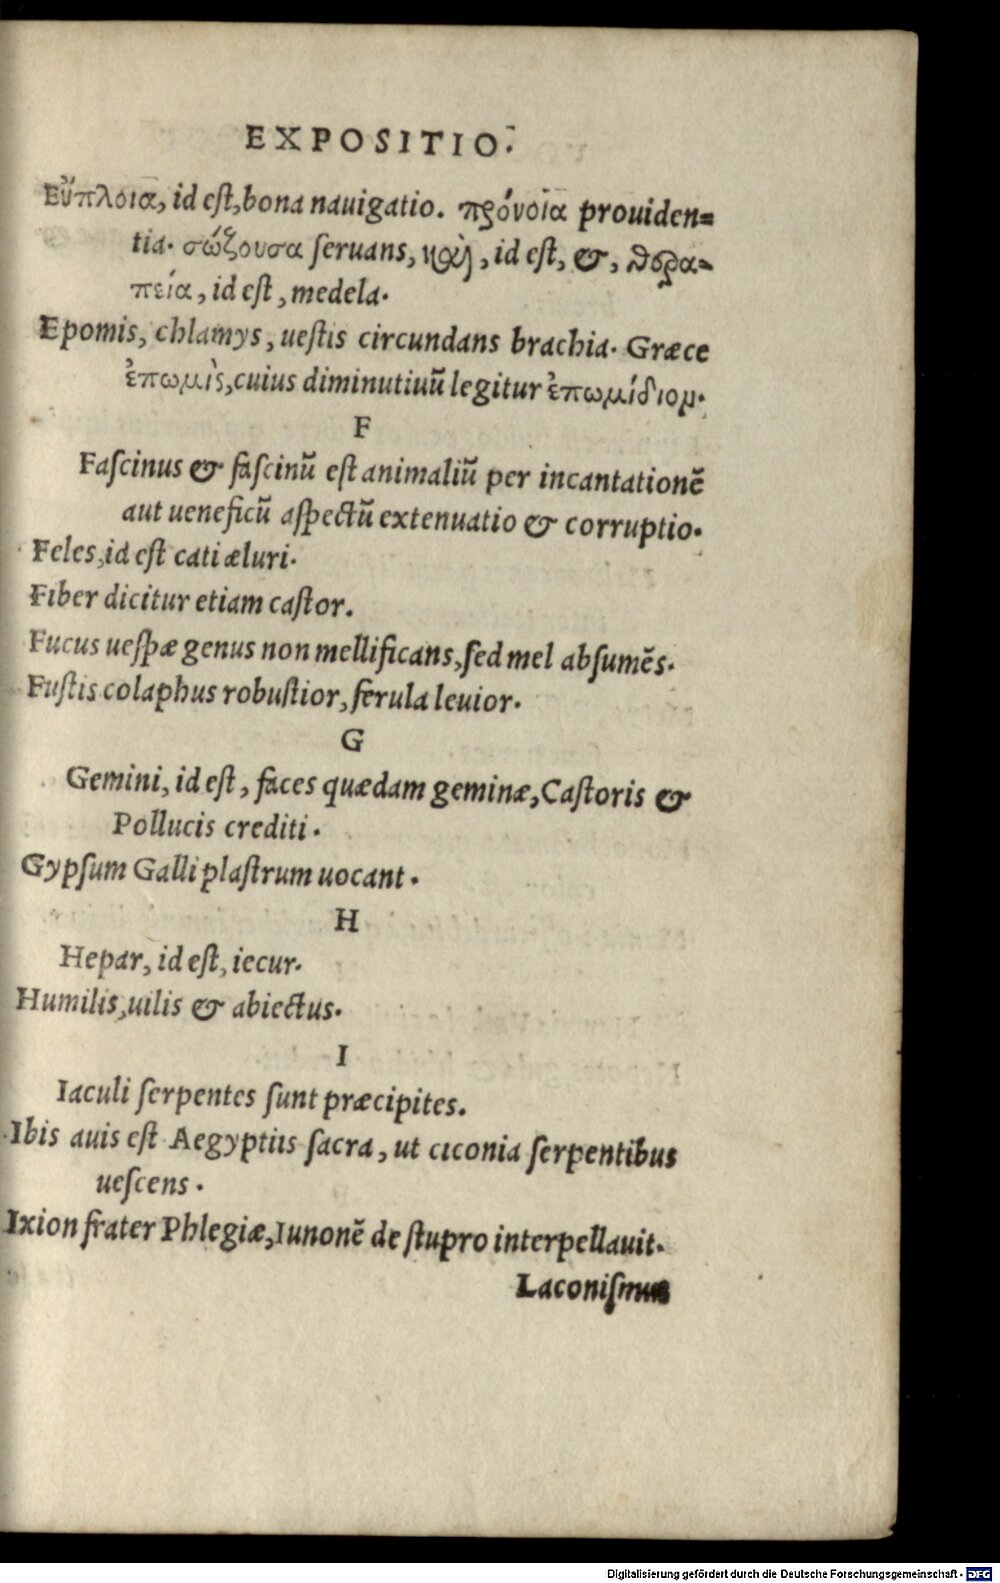 EXPOSITIO.
Εὔπλοια, id eſt, bona nauigatio. πρόνοια prouiden=
tia. σώζουσα ſeruans, καὶ, id eſt, &, θερα=
πεία, id eſt, medela.
Epomis, chlamys, ueſtis circundans brachia. Græce
ἐπωμὶς, cuius diminutiuū legitur ἐπωμίδιομ.
F
Faſcinus & faſcinū eſt animaliū per incantationē
aut ueneficū aſpectū extenuatio & corruptio.
Feles, id eſt cati æluri.
Fiber dicitur etiam caſtor.
Fucus ueſpæ genus non mellificans, ſed mel abſumēs.
Fuſtis colaphus robuſtior, ferula leuior.
G
Gemini, id eſt, faces quædam geminæ, Caſtoris &
Pollucis crediti.
Gypſum Galli plaſtrum uocant.
H
Hepar, id eſt, iecur.
Humilis, uilis & abiectus.
I
Iaculi ſerpentes ſunt præcipites.
Ibis auis eſt Aegyptiis ſacra, ut ciconia ſerpentibus
ueſcens.
Ixion frater Phlegiæ, Iunonē de ſtupro interpellauit.
Laconiſmus
Digitalisierung gefördert durch die Deutsche Forschungsgemeinschaft - DFG